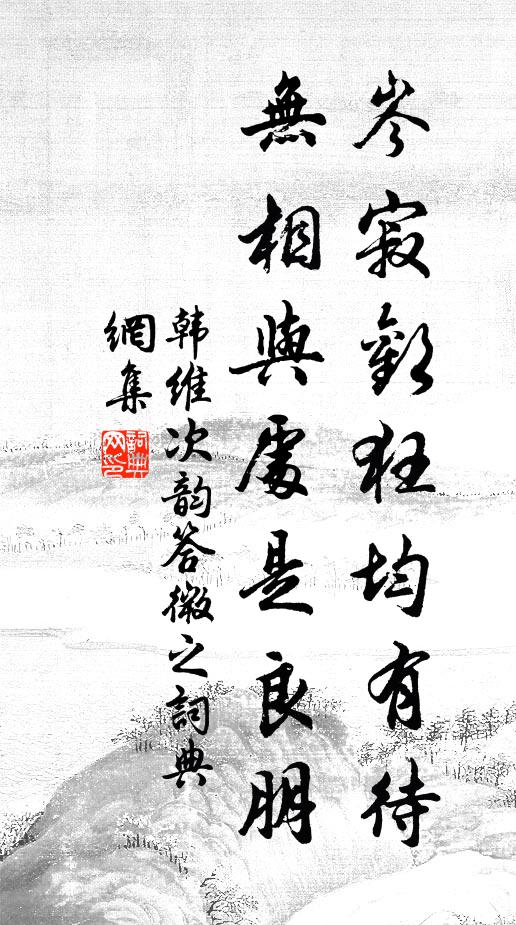 岑寂歡狂均有待
無相與處是良朋
韩維次韵答微之詞典
網集
詞典网印